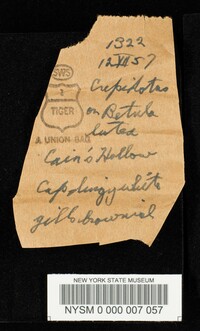 1322
12 VII 57
SWS
1
TIGER
A UNION BAG
Crepidotus
on Betula
lutea
Cain's Hollow
Cap dingy white
gills brownish
NEW YORK STATE MUSEUM
NYSM 0 000 007 057